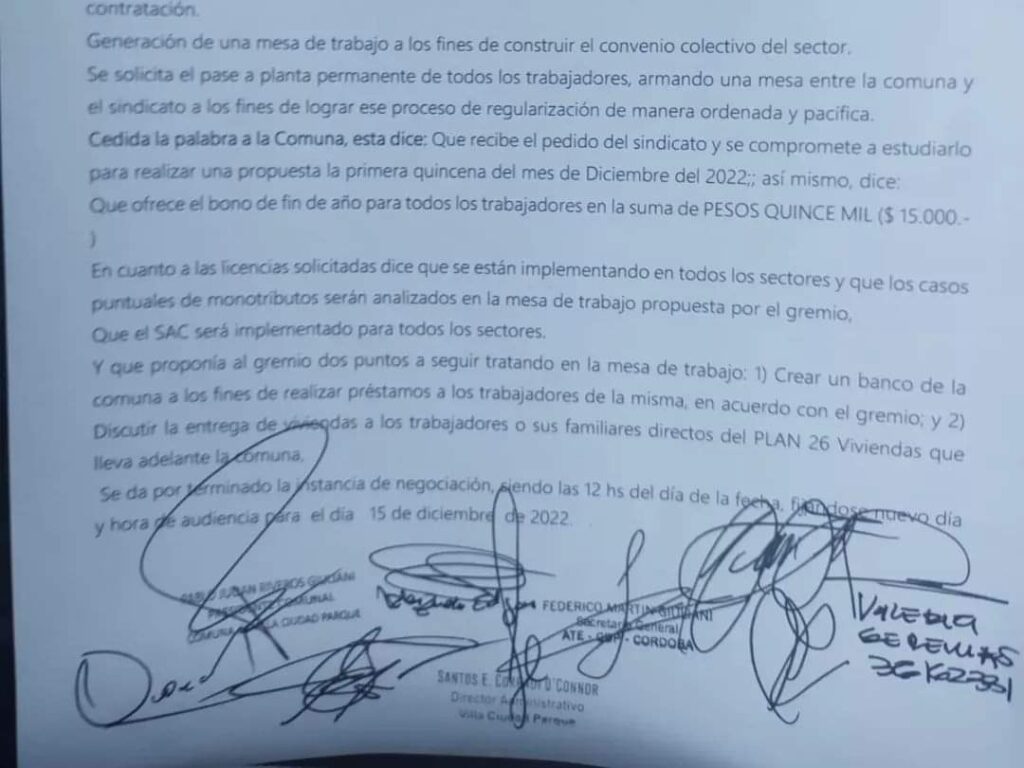 contratación.
Generación de una mesa de trabajo a los fines de construir el convenio colectivo del sector.
Se solicita el pase a planta permanente de todos los trabajadores, armando una mesa entre la comuna y
el sindicato a los fines de lograr ese proceso de regularización de manera ordenada y pacifica.
Cedida la palabra a la Comuna, esta dice: Que recibe el pedido del sindicato y se compromete a estudiarlo
para realizar una propuesta la primera quincena del mes de Diciembre del 2022;; así mismo, dice:
Que ofrece el bono de fin de año para todos los trabajadores en la suma de PESOS QUINCE MIL ($ 15.000.-
)
En cuanto a las licencias solicitadas dice que se están implementando en todos los sectores y que los casos
puntuales de monotributos serán analizados en la mesa de trabajo propuesta por el gremio,
Que el SAC será implementado para todos los sectores.
Y que proponía al gremio dos puntos a seguir tratando en la mesa de trabajo: 1) Crear un banco de la
comuna a los fines de realizar préstamos a los trabajadores de la misma, en acuerdo con el gremio; y 2)
Discutir la entrega de viviendas a los trabajadores o sus familiares directos del PLAN 26 Viviendas que
lleva adelante la comuna.
Se da por terminado la instancia de negociación, siendo las 12 hs del día de la fecha, fijándose nuevo día
y hora de audiencia para el día 15 de diciembre de 2022.
PABLO JULIAN RIVEROS GIULIANI
PRESIDENTE COMUNAL
COMUNA VILLA CIUDAD PARQUE
FEDERICO MARTIN GIULIANI
Secretario General
ATE - - CORDOBA
SANTOS E. O'CONNOR
Director Administrativo
Villa Ciudad Parque
VALERIA